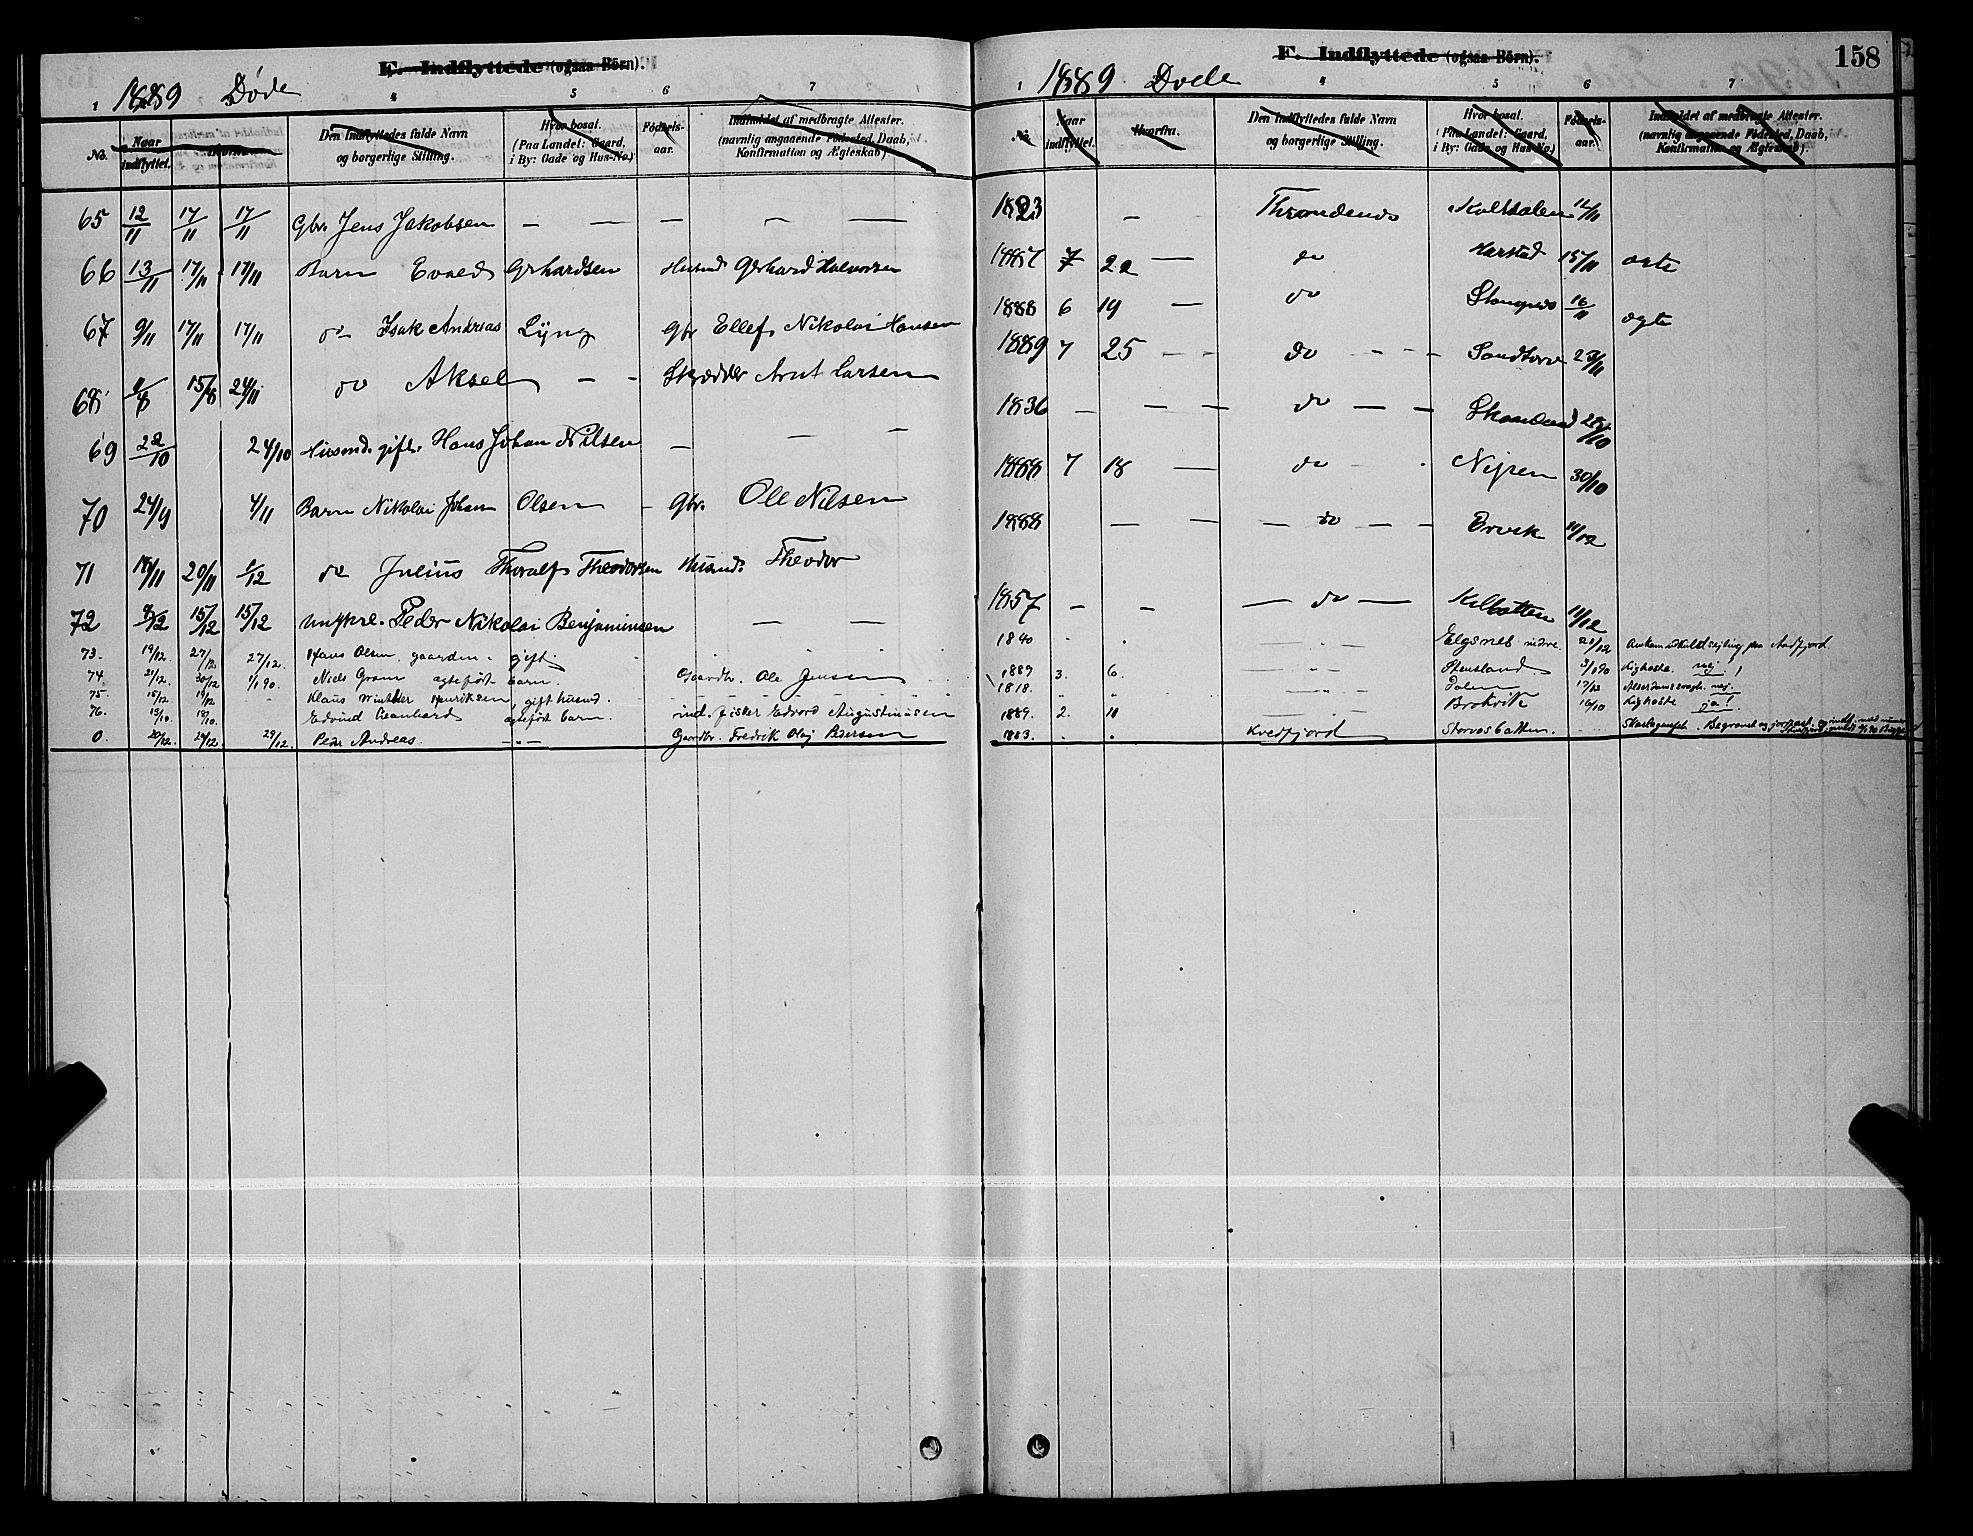 F. Indflyttede (ogsaa Börn).
1889 Døde
1 4 5 6 7
No. Naar indflyttet. Den Indflyttedes fulde Navn og borgerlige Stilling. Hvor bosat. (Paa Landet: Gaard, i By: Gade og Hus-No.) Födsels-aar. Indholdet af medbragte Attester. (navnlig angaaende Födested, Daab, Konfirmation og Ægteskab).
65 12/11 17/11 17/11 Gbr. Jens Jakobsen — — — — —
66 13/11 17/11 17/11 Barn Evald Grhardsen Husmd Gerhard Halvorsen
67 9/11 17/11 17/11 do Isak Andreas Lyng Gbr Ellef Nikolai Hansen
68 15/8 24/11 do Aksel — - Skrædder Arnt Larsen
69 22/10 24/10 Husmd. gift. Hans Johan Nilsen — — —
70 24/9 4/11 Barn Nikolai Johan Olsen - Gbr. Ole Nilsen
71 20/11 1/12 do Julius Thoralf Theodorsen Husmd. Theodor
72 15/12 15/12 Ungkrl. Peder Nikolai Benjaminsen — —
73. 19/12. 27/12. 27/12. Hans Olsen. gaardm. gift.
74. 21/12. 30/12 1/1 90. Niels Gram ægtefødt barn. Gaardbr. Ole Jensen
75. 15/12. 19/12 Klaus Winther Henriksen, gift husmd.
76. 13/10. 18/10. Edvind Leonhard ægtefødt barn. ind. fisker Edvard Augustinusen
0. 20/12. 29/12 29/12. Peder Andreas. —"— Gaardbr. Fredrik Olaj Pedersen
F. Indflyttede (ogsaa Börn). 158
1889 Døde
1 4 5 6 7
No. Naar indflyttet. Hvorfra. Den Indflyttedes fulde Navn og borgerlige Stilling. Hvor bosat. (Paa Landet: Gaard, i By: Gade og Hus-No.) Födsels-aar. Indholdet af medbragte Attester. (navnlig angaaende Födested, Daab, Konfirmation og Ægteskab).
1823 — Throndenes 12/11
7 22 — do Harstad 15/11 ægte
1888 6 19 — do Stangnes 16/11 ægte
1889 7 25 — - do - - - Sandtorv 23/11
1836 — — — do — — Skanland
1888 7 18 — do - . 30/10
1888 — — — do — — Ervik 11/12
1857 - — — do — 11/12
1840 " " " Elgsnes indre 21/12
1889 3. 6. " Stensland. 3/1 90 Kighoste. nej. !
1818. " " " Dalen 17/12 nej.
1889. 2. 10 " Brokvik 16/10 Kighoste ja!
1883. " " Kvedfjord Storvasbotten.